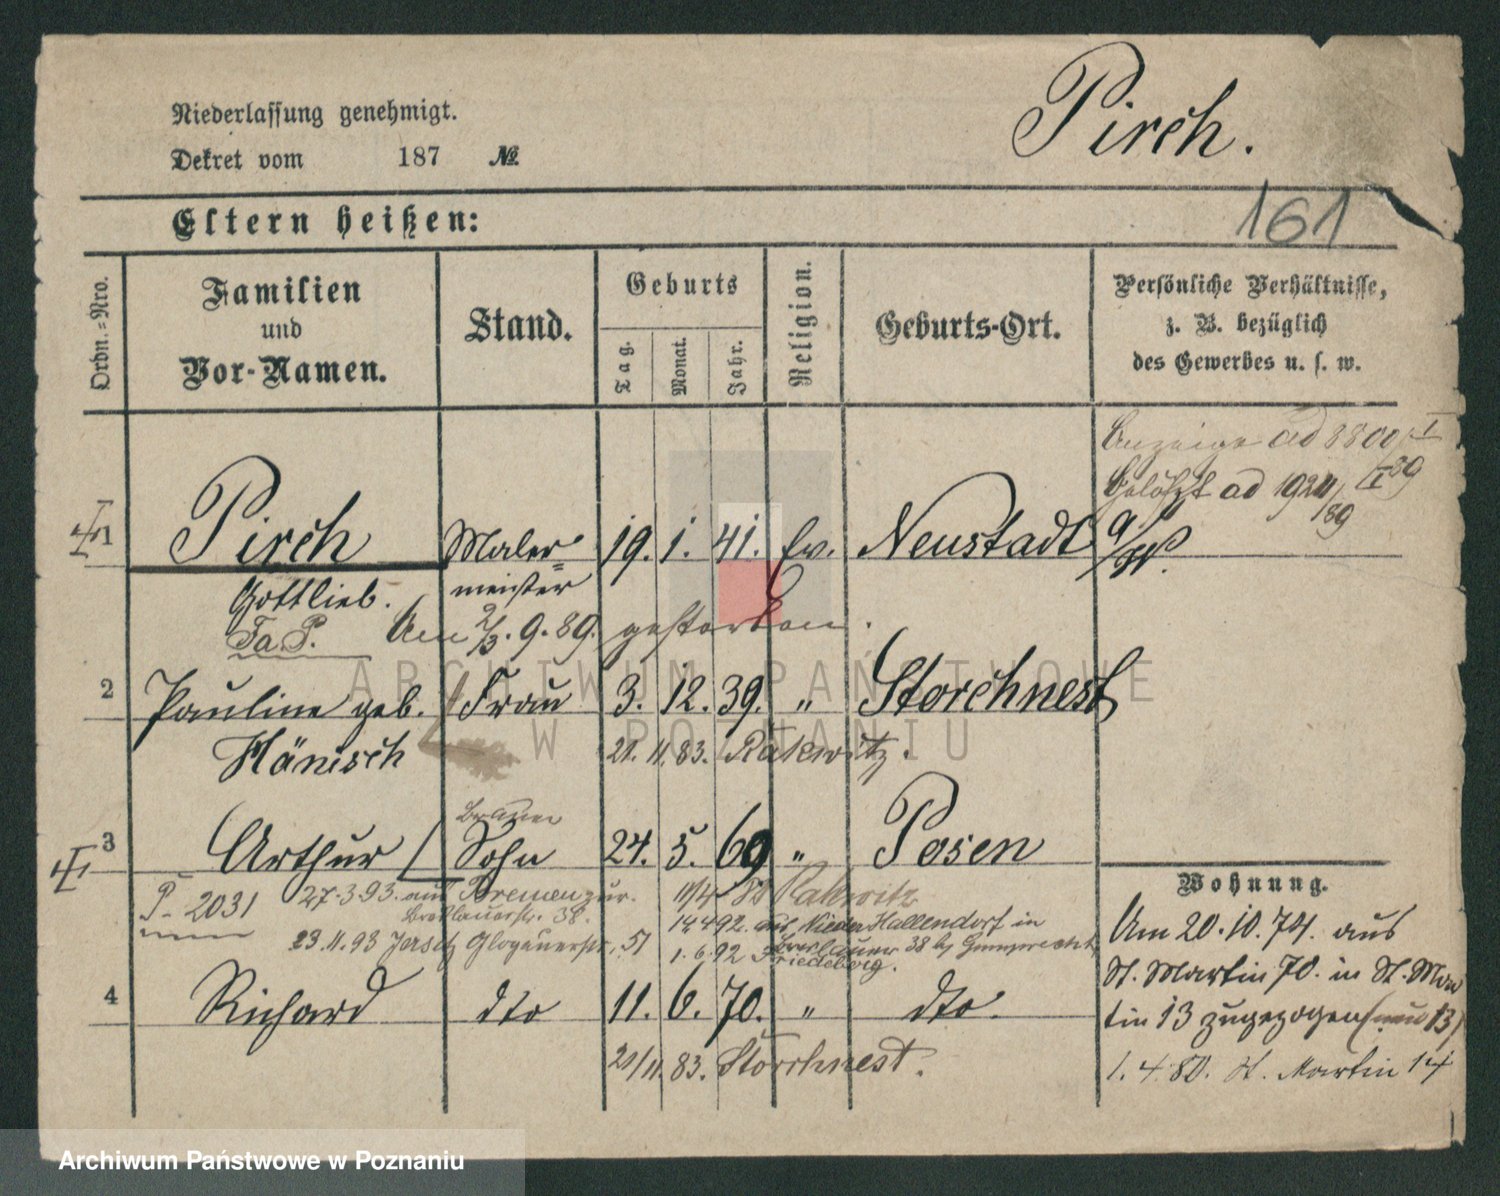 Niederlassung genehmigt.
Dekret vom 187 №
Pirch.
161
Eltern heißen:
Ordn.-Nro.
Familien und Vor-Namen.
Stand.
Geburts
Tag. Monat. Jahr.
Religion.
Geburts-Ort.
Persönliche Verhältnisse,
z. B. bezüglich
des Gewerbes u. s. w.
Anzeige ad 8800 I/89
Gelöscht ad 1924/I 89
1 Pirch Maler= 19. 1. 41. Ev. Neustadt a/W.
Gottlieb. meister
Fa P. Am 2/3. 9. 89. gestorben.
2 Pauline geb. Frau 3. 12. 39. " Storchnest
Hänisch 21. 11. 83. Rakwitz.
Brauer
3 Arthur Sohn 24. 5. 69 " Posen
P. 2031 27.3.93. auf Bremen zur. 11/4 Rakwitz
Breslauerstr. 38. 14 4 92. aus Nieder Hallendorf in
23.11.93 Jersitz Glogauerstr. 51 Breslauer 38 bj Gumprecht
1. 6. 92 Friedeberg.
4 Richard dto 11. 6. 70. " dto.
21/11. 83. Storchnest.
Wohnung.
Am 20. 10. 74. aus
St. Martin 70. in St. Mar
tin 13 zugezogen (neu 13)
1. 4. 80. St. Martin 14
ARCHIWUM PAŃSTWOWE
W POZNANIU
Archiwum Państwowe w Poznaniu